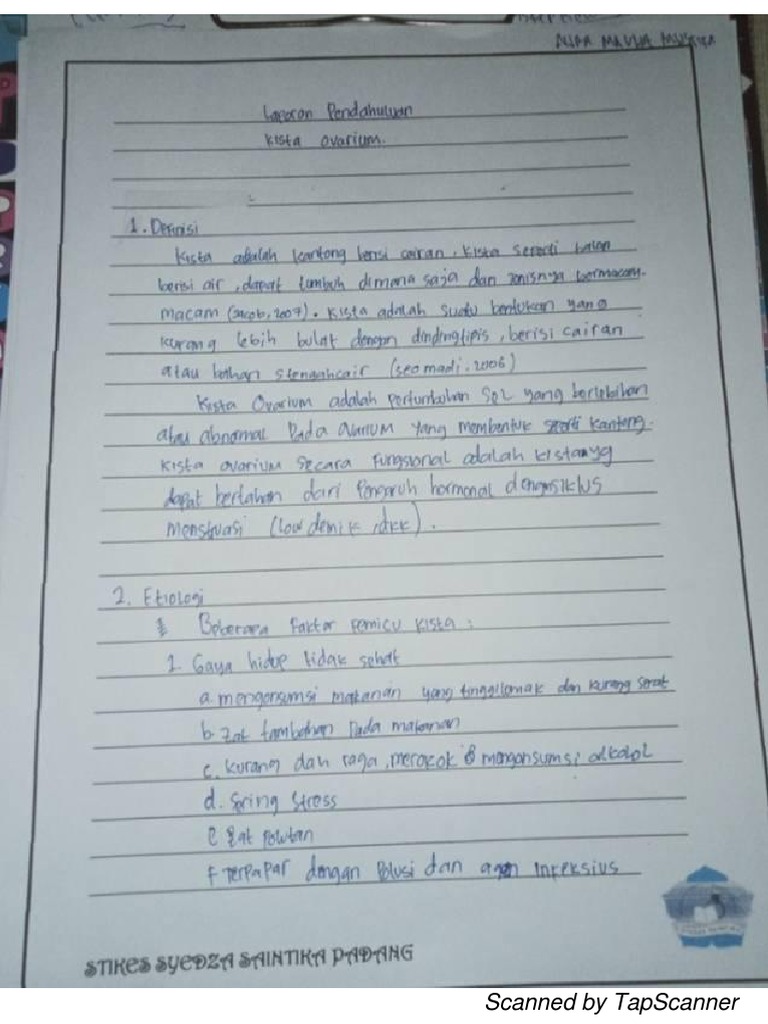 Laporan Pendahuluan
Kista Ovarium.
1. Definisi
Kista adalah kantong berisi cairan, kista seperti balon
berisi air, dapat tumbuh dimana saja dan jenisnya bermacam-
macam (Jacob, 2007). Kista adalah suatu bentukan yang
kurang lebih bulat dengan dinding tipis, berisi cairan
atau bahan setengahcair (seomadi, 2006)
Kista Ovarium adalah pertumbuhan sel yang berlebihan
atau abnormal pada ovarium yang membentuk seperti kantong.
Kista ovarium secara fungsional adalah kista yg
dapat bertahan dari pengaruh hormonal dengan siklus
menstruasi (lowdemik, dkk).
2. Etiologi
Beberapa faktor pemicu kista :
1. Gaya hidup tidak sehat
a. mengonsumsi makanan yang tinggi lemak dan kurang serat
b. zat tambahan pada makanan
c. kurang olah raga, merokok & mengonsumsi alkohol
d. Sering stress
e zat polutan
f terpapar dengan polusi dan agen infeksius
STIKES SYEDZA SAINTIKA PADANG
Scanned by TapScanner